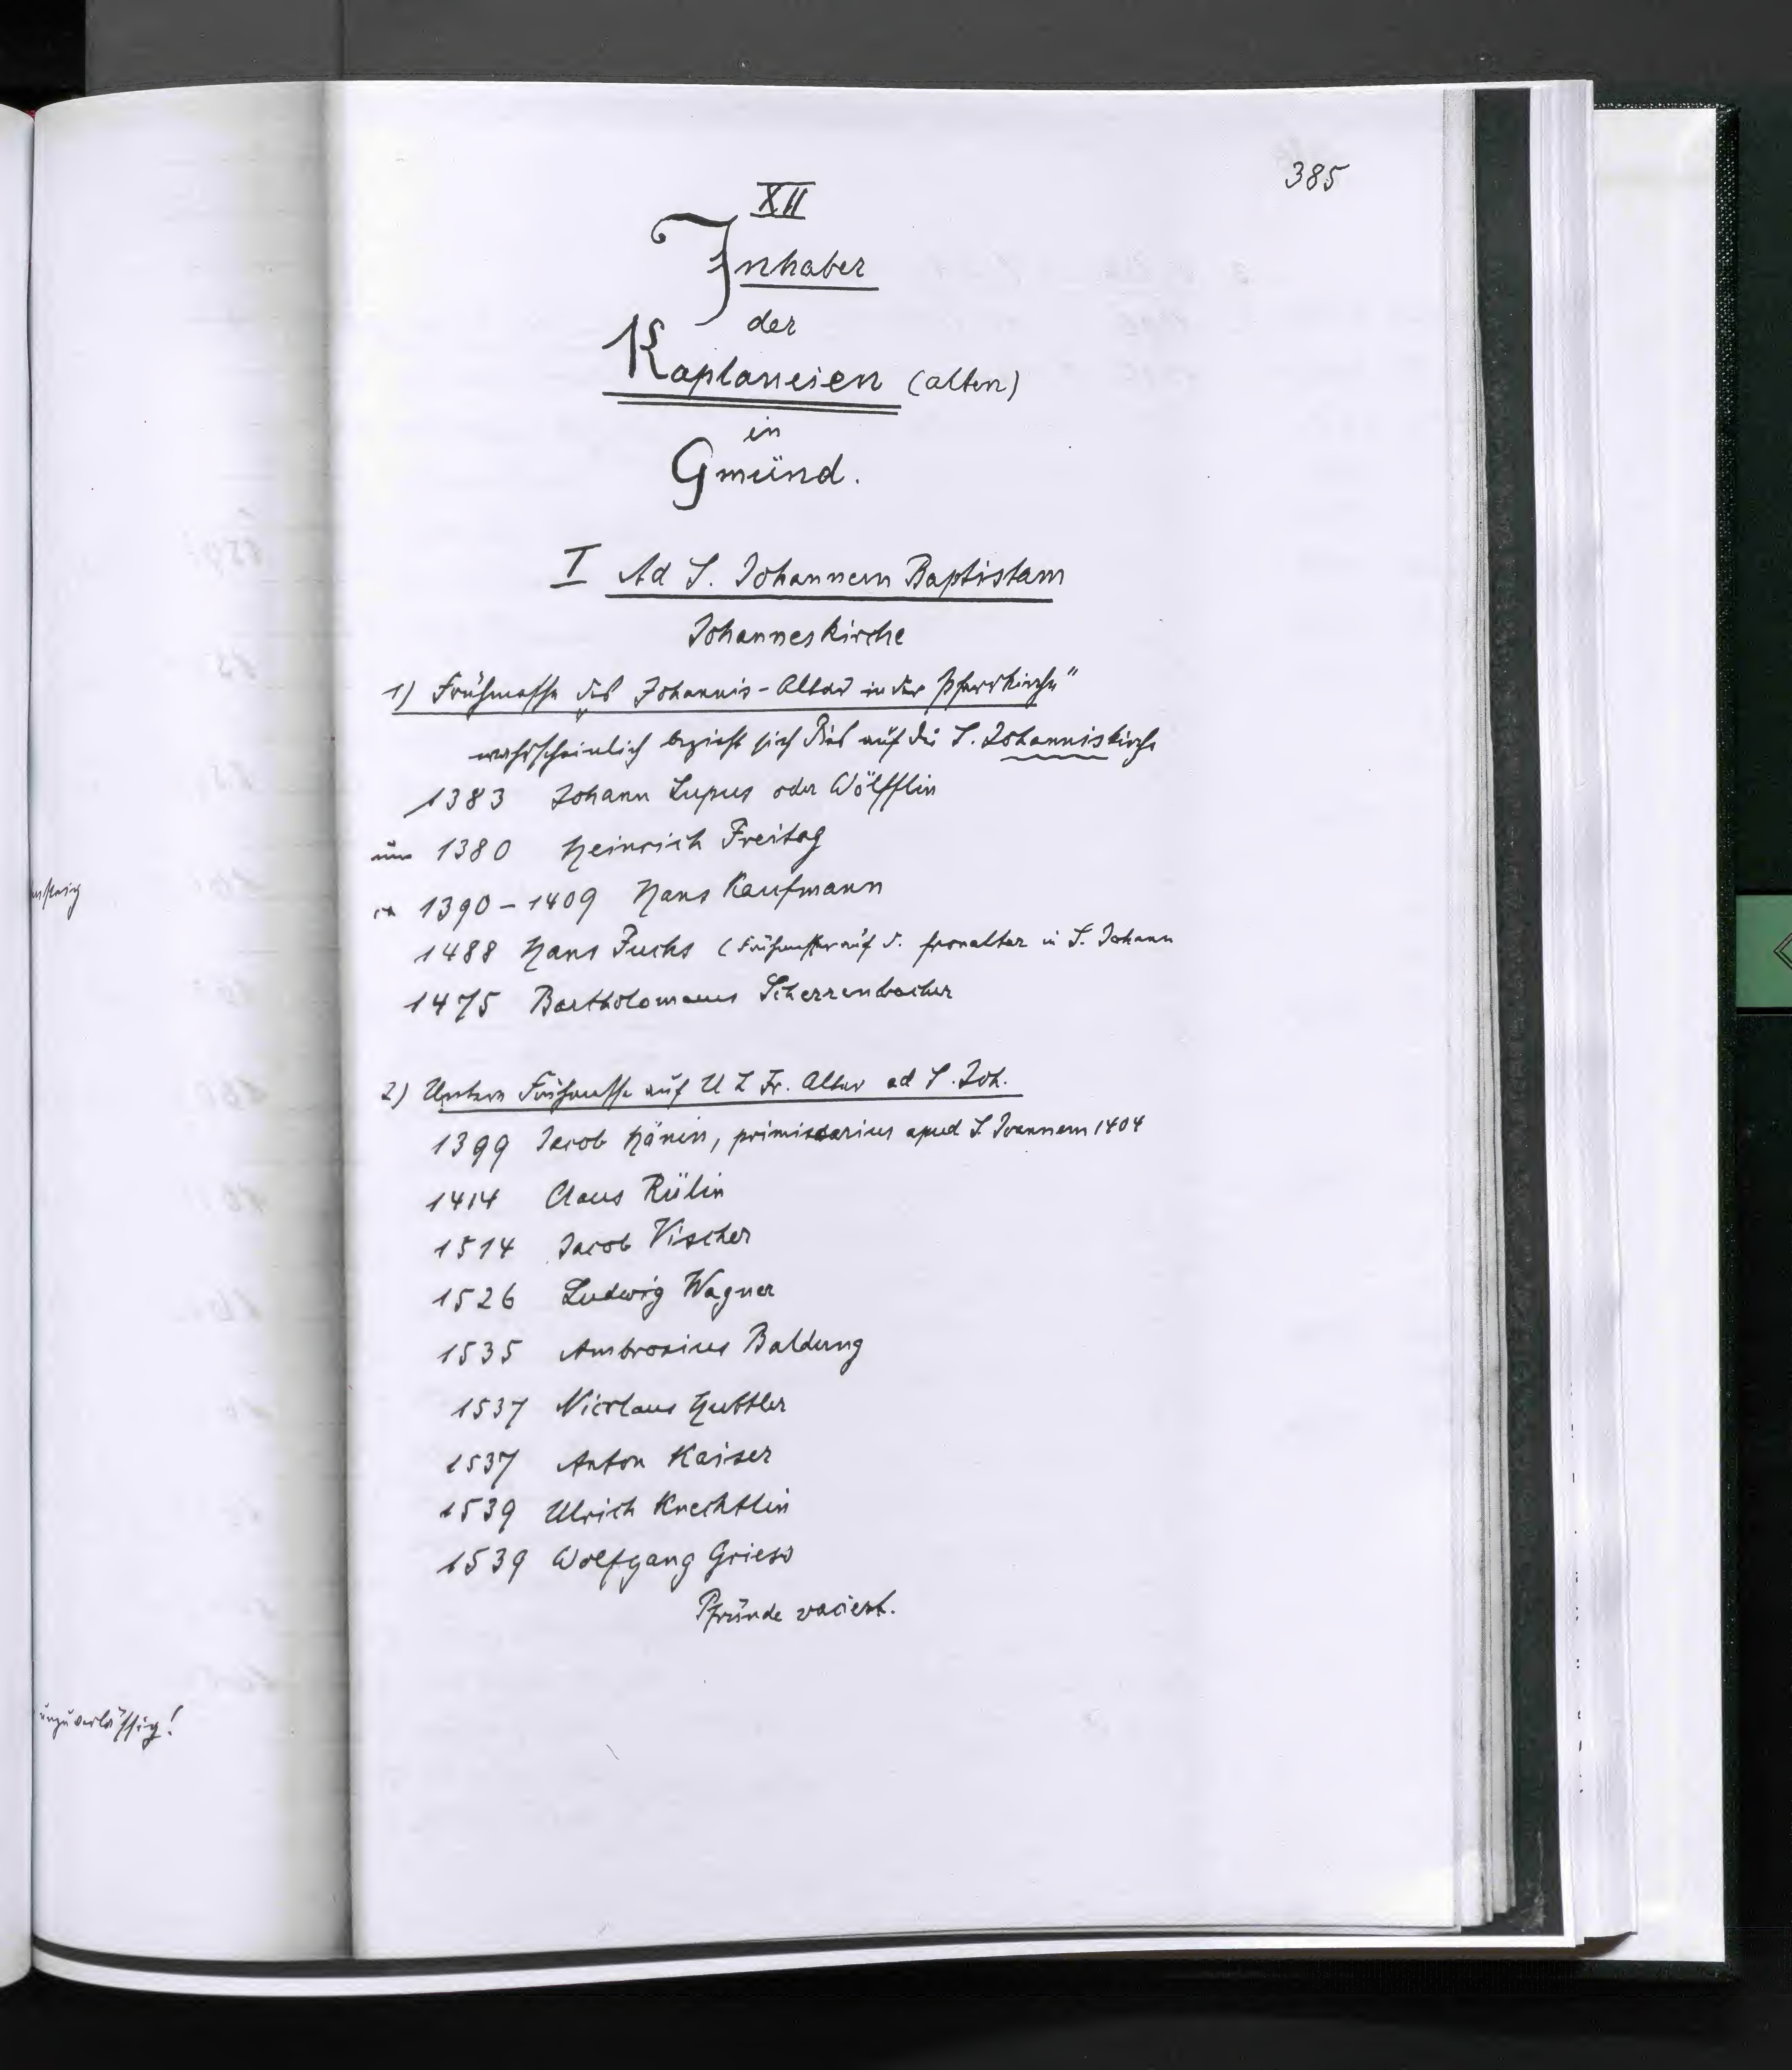 385
XII
Inhaber
der
Kaplaneien (alten)
in
Gmünd.
I Ad S. Johannem Baptistam
Johanneskirche
1) Frühmesse des Johannis-Altar in der Pfarrkirche"
wahrscheinlich bezieht sich dies auf die S. Johanniskirche
1383 Johann Lupus oder Wölfflin
um 1380 Heinrich Freitag
ca 1390-1409 Hans Kaufmann
1488 Hans Fuchs (Frühmesser auf d. fronaltar in S. Johann
1475 Bartholomaeus Scherrenbacher
2) Untere Frühmesse auf U L Fr. Altar ad S. Joh.
1399 Jacob Hänin, primissarius apud S. Joannem 1404
1414 Claus Rülin
1514 Jacob Vischer
1526 Ludwig Wagner
1535 Ambrosius Baldung
1537 Nicolaus Huttler
1537 Anton Kaiser
1539 Ulrich Knechtlin
1539 Wolfgang Griess
Pfründe vaciert.
unzuverlässig!